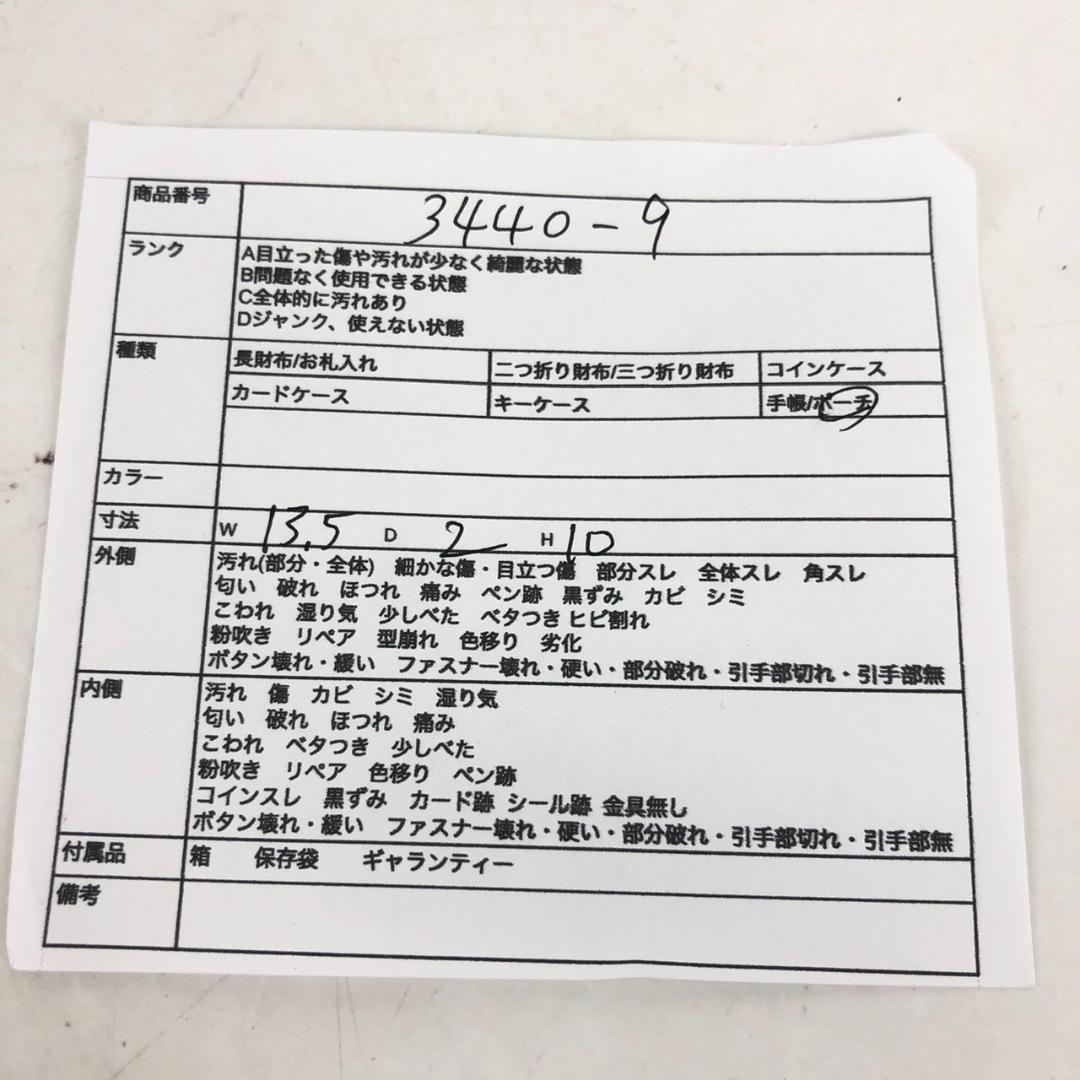 商品番号 3440-9
ランク A目立った傷や汚れが少なく綺麗な状態
B問題なく使用できる状態
C全体的に汚れあり
Dジャンク、使えない状態
種類 長財布/お札入れ 二つ折り財布/三つ折り財布 コインケース
カードケース キーケース 手帳/ポーチ
カラー
寸法 W 13.5 D 2 H 10
外側 汚れ(部分・全体) 細かな傷・目立つ傷 部分スレ 全体スレ 角スレ
匂い 破れ ほつれ 痛み ペン跡 黒ずみ カビ シミ
こわれ 湿り気 少しべた ベタつき ヒビ割れ
粉吹き リペア 型崩れ 色移り 劣化
ボタン壊れ・緩い ファスナー壊れ・硬い・部分破れ・引手部切れ・引手部無
内側 汚れ 傷 カビ シミ 湿り気
匂い 破れ ほつれ 痛み
こわれ ベタつき 少しべた
粉吹き リペア 色移り ペン跡
コインスレ 黒ずみ カード跡 シール跡 金具無し
ボタン壊れ・緩い ファスナー壊れ・硬い・部分破れ・引手部切れ・引手部無
付属品 箱 保存袋 ギャランティー
備考